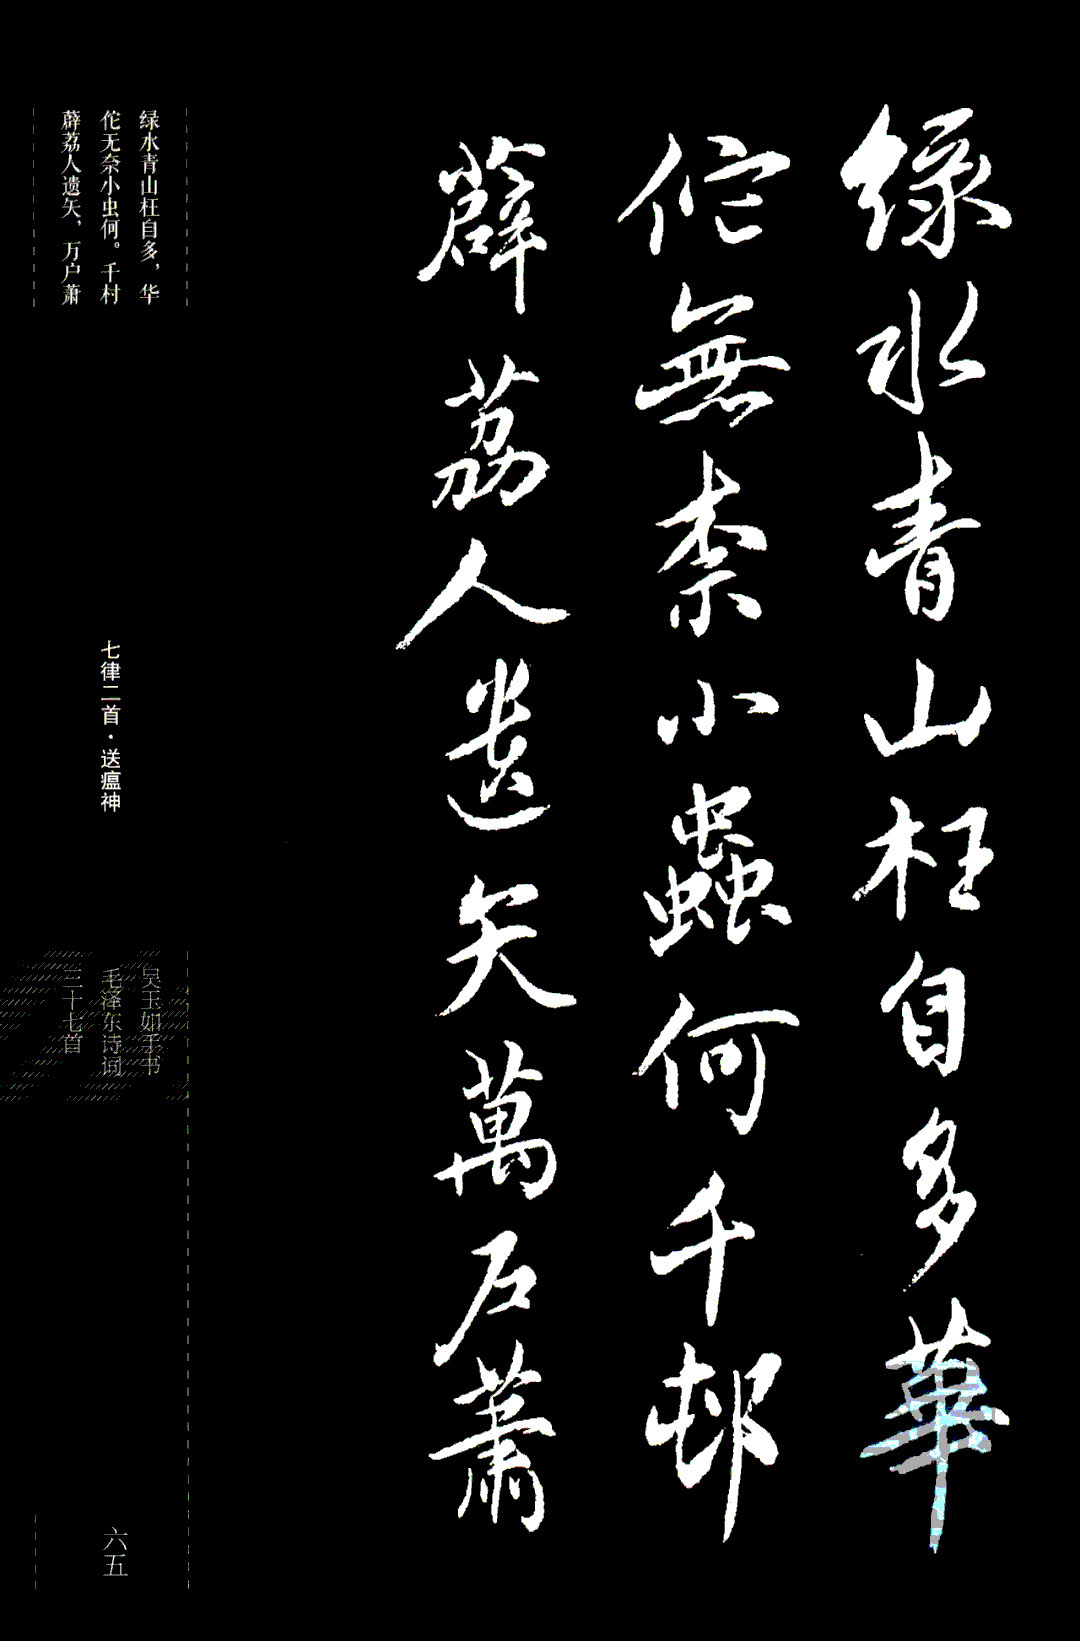 綠水青山枉自多華
佗無柰小蟲何千邨
薜荔人遺矢萬戶蕭
绿水青山枉自多，华
佗无奈小虫何。千村
薜荔人遗矢，万户萧
七律二首·送瘟神
吴玉如手书
毛泽东诗词
三十七首
六五